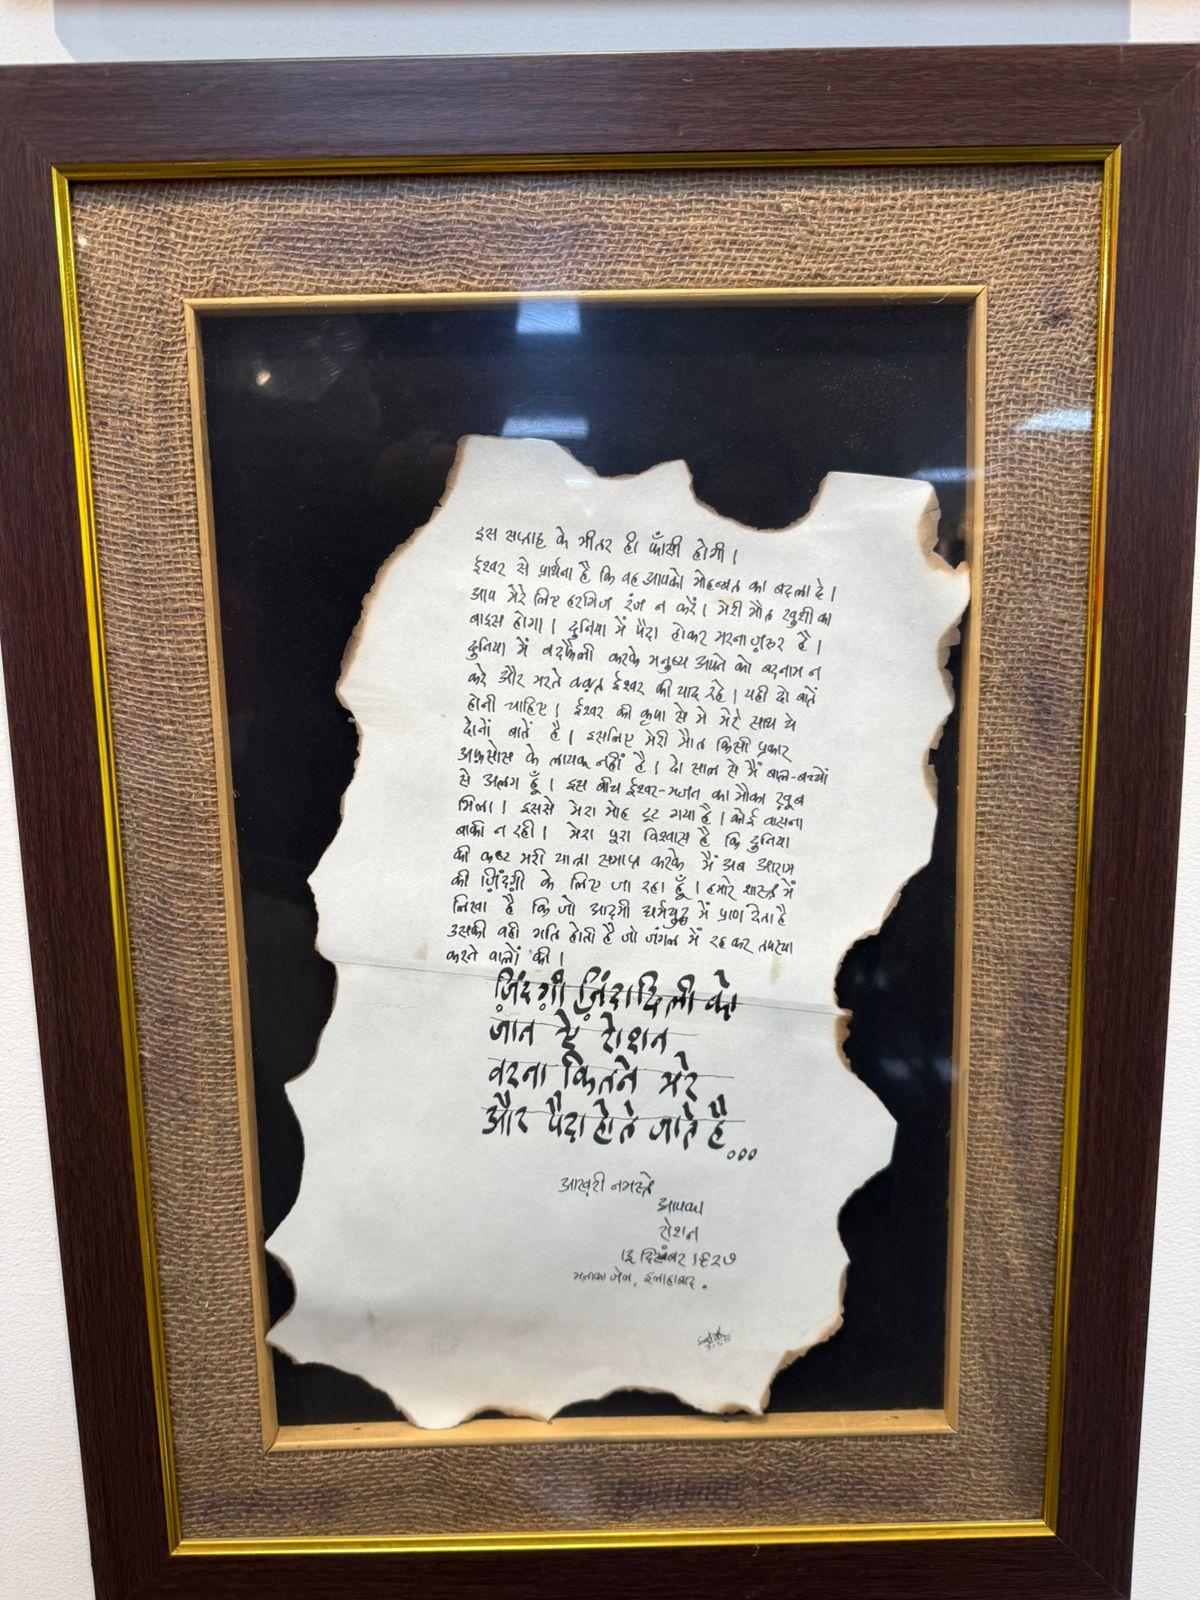 इस सप्ताह के भीतर ही फाँसी होगी।
ईश्वर से प्रार्थना है कि वह आपको मोहब्बत का बदला दे।
आप मेरे लिए हरगिज रंज न करें। मेरी मौत खुशी का
बाइस होगा। दुनिया में पैदा होकर मरना ज़रूर है।
दुनिया में बदफैली करके मनुष्य अपने को बदनाम न
करे और मरते वक़्त ईश्वर की याद रहे। यही दो बातें
होनी चाहिए। ईश्वर की कृपा से मे मेरे साथ ये
दोनों बातें है। इसलिए मेरी मौत किसी प्रकार
अफ़सोस के लायक नहीं है। दो साल से मैं बाल-बच्चों
से अलग हूँ। इस बीच ईश्वर-भजन का मौका ख़ूब
मिला। इससे मेरा मोह टूट गया है। कोई वासना
बाकी न रही। मेरा पूरा विश्वास है कि दुनिया
की कष्ट भरी यात्रा समाप्त करके मैं अब आराम
की ज़िंदग़ी के लिए जा रहा हूँ। हमारे शास्त्र में
लिखा है कि जो आदमी धर्मयुद्ध में प्राण देता है
उसकी वही गति होती है जो जंगल में रह कर तपस्या
करते वालों की।
ज़िंदग़ी ज़िंदादिली को
जान ऐ रोशन
वरना कितने मरे
और पैदा होते जाते है...
आख़री नमस्ते
आपका
रोशन
१३ दिसंबर १९२७
मलाका जेल, इलाहाबाद.